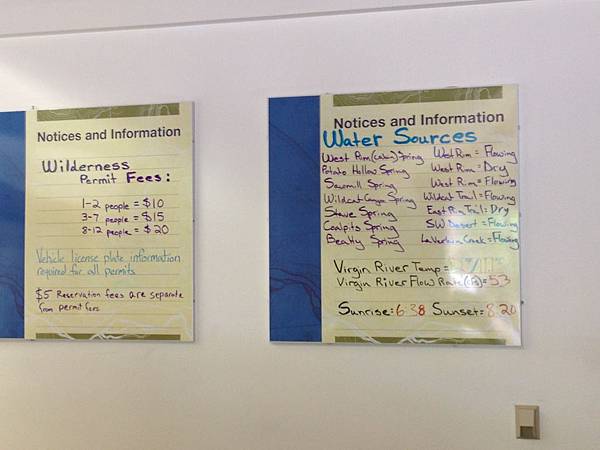 Notices and Information
Wilderness
Permit Fees:
1-2 people = $10
3-7 people = $15
8-12 people = $20
Vehicle license plate information
required for all permits
$5 Reservation fees are separate
from permit fees
Notices and Information
Water Sources
West Rim (Cabin) Spring West Rim = Flowing
Potato Hollow Spring West Rim = Dry
Sawmill Spring West Rim = Flowing
Wildcat Canyon Spring Wildcat Trail = Flowing
Stave Spring East Rim Trail = Dry
Coalpits Spring SW Desert = Flowing
Beatty Spring LaVerkin Creek = Flowing
Virgin River Temp =
Virgin River Flow Rate (cfs) = 53
Sunrise: 6:38 Sunset = 8:20